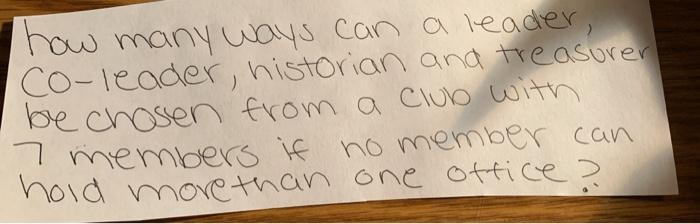 how many ways can a leader,
co-leader, historian and treasurer
be chosen from a club with
7 members if no member can
hold more than one office?